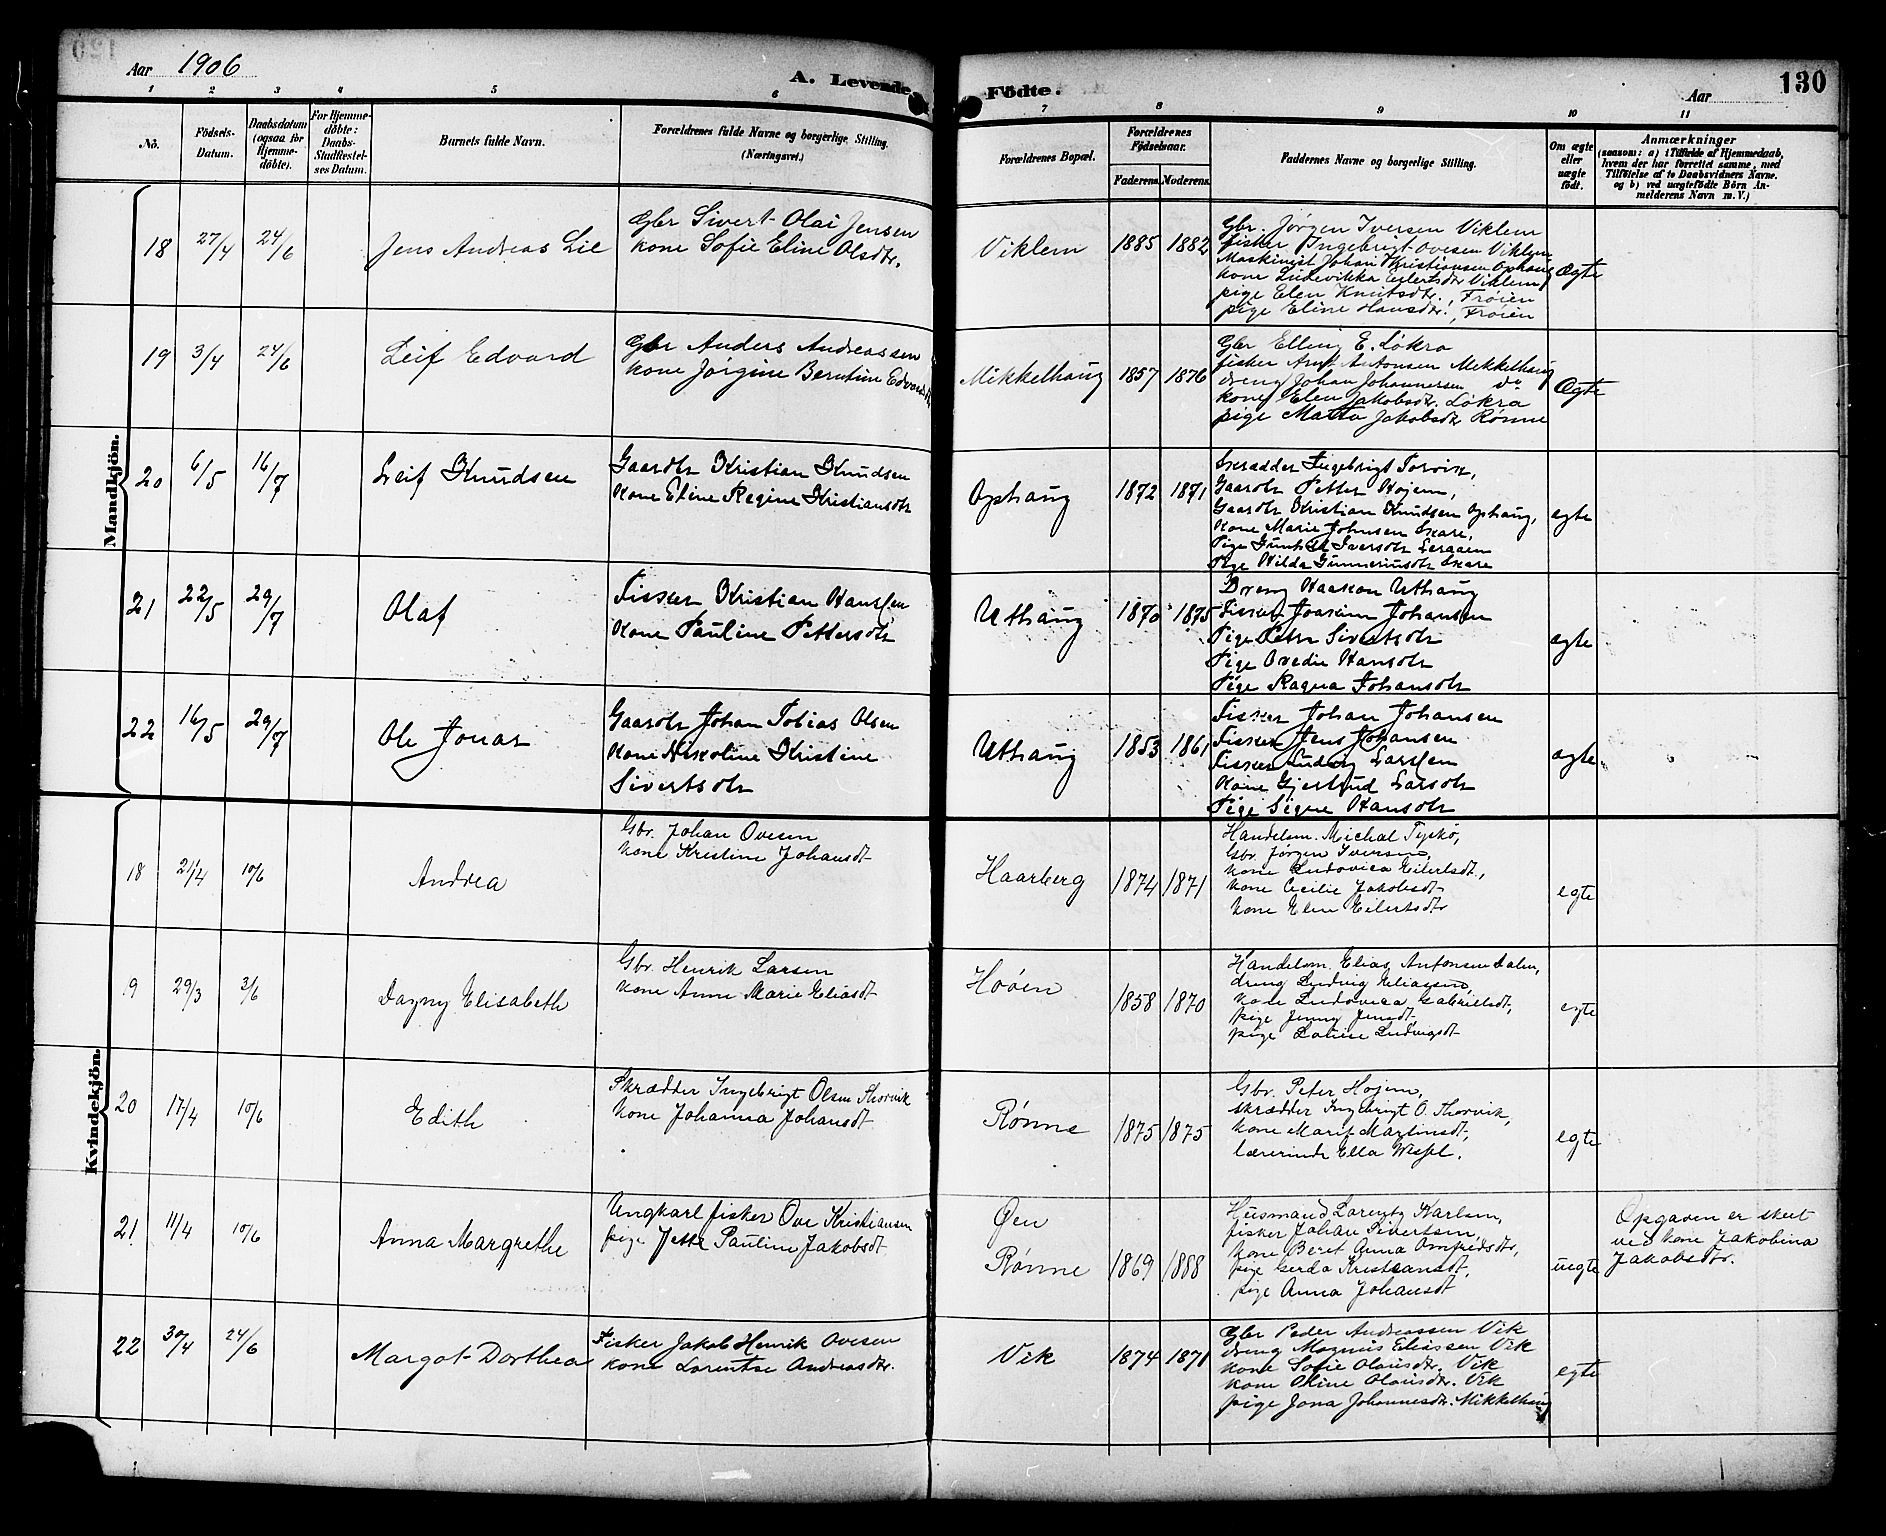 Aar 1906
A. Levende Födte.
130
Aar
1 2 3 4 5 6 7 8 9 10 11
No.
Födsels-Datum.
Daabsdatum (ogsaa for Hjemme-döbte).
For Hjemme-döbte: Daabs-Stadfæstel-ses Datum.
Barnets fulde Navn.
Forældrenes fulde Navne og borgerlige Stilling. (Næringsvei.)
Forældrenes Bopæl.
Forældrenes Födselsaar.
Faderens. Moderens.
Faddernes Navne og borgerlige Stilling.
Om ægte eller uægte födt.
Anmærkninger
(saasom: a) i Tilfælde af Hjemmedaab, hvem der har forrettet samme, med Tilföielse af to Daabsvidners Navne. og b) ved uægtefödte Börn An-melderens Navn m. V.)
Mandkjön.
18 27/4 24/6 Jens Andreas Lie
Gbr Sivert Olai Jensen
kone Sofie Eline Olsdtr.
Viklem 1885 1882
Gbr. Jørgen Iversen Viklem
fisker Ingebrigt Ovesen Viklem
Maskinist Johan Kristiansen Ophaug
kone Ludevikka Eilertsdtr Viklem
pige Elen Knutsdtr., Frøien
pige Eline Hansdtr., Frøien
Ægte
19 3/4 24/6 Leif Edvard
Gbr Anders Andreassen
kone Jørgine Berntine
Mikkelhaug 1857 1876
Gbr Elling E. Løkra
fisker Arnt Antonsen Mikkelhaug
dreng Johan Johannesen do
kone Elen Jakobsdtr. Løkra
pige Matta Jakobsdtr Rønne
Ægte
20 6/5 16/7 Leif Knudsen
Gaardbr Kristian Knudsen
Kone Eline Regine Kristiansdtr
Ophaug 1872 1871
Skrædder Ingebrigt Torvik,
Gaardbr Petter Hojem,
Gaardbr Kristian Knudsen Ophaug,
Kone Marie Johnsen Skare,
Pige Iversdtr
Pige Hilda Gunneriusdtr Skare
egte
21 22/5 29/7 Olaf
Fisker Kristian Hanssen
Kone Pauline Pettersdtr
Uthaug 1870 1875
Dreng Haakon Uthaug
Fisker Joakim Johansen
Pige Petra Sivertsdtr
Pige Ovedie Hansdtr
Pige Ragna Johansdtr
egte
22 16/5 29/7 Ole Jonas
Gaardbr Johan Tobias Olsen
Kone Nikoline Kristine
Sivertsdtr
Uthaug 1853 1861
Fisker Johan Johansen
Fisker Jens Johansen
Fisker Ludvig Larssen
Kone Gjertrud Larsdtr
Pige Signe Hansdtr
egte
Kvindekjön.
18 21/4 10/6 Andrea
Gbr. Johan Ovesen
kone Kristine Johansdt
Haarberg 1874 1871
Handelsm. Michal Tyskø,
Gbr. Jørgen Iversen,
kone Ludovica Eilertsdt,
kone Cecilie Jakobsdt
kone Elen Eilertsdtr
egte
9 29/3 3/6 Dagny Elisabeth
Gbr. Henrik Larsen
kone Anne Marie Eliasdt
Hoøen 1858 1870
Handelsm. Elias Antonsen Dalen,
dreng Ludvig Eliasen,
kone Ludovica Gabrielsdt,
pige Jenny Jensdt,
pige Lovise Ludvigsdt
egte
20 17/4 10/6 Edith
Skrædder Ingebrigt Olsen Thorvik
kone Johanna Johansdt
Rønne 1875 1875
Gbr. Peter Hojem,
skrædder Ingebrigt O. Thorvik,
kone Marit Martinsdt,
lærerinde Ella Wessel.
egte
21 11/4 10/6 Anna Margrethe
Ungkarl fisker Ove Kristiansen
pige Jette Pauline Jakobsdt
Øen
Rønne 1869 1888
Husmand Lorentz Karlsen,
fisker Johan Sivertsen,
kone Beret Anna Arnfredsdt,
pige Gerda Kristiansdt,
pige Anna Johansdt
uegte
Opgaven er skeet
ved kone Jakobina
Jakobsdtr.
22 30/4 24/6 Margot Dorthea
Fisker Jakob Henrik Ovesen
kone Lorentse Andreasdtr.
Vik 1874 1871
Gbr Peder Andreassen Vik
dreng Magnus Eliassen Vik
kone Sofie Olausdtr. Vik
kone Oline Olausdtr. Vik
pige Jona Johannesdtr. Mikkelhaug
egte